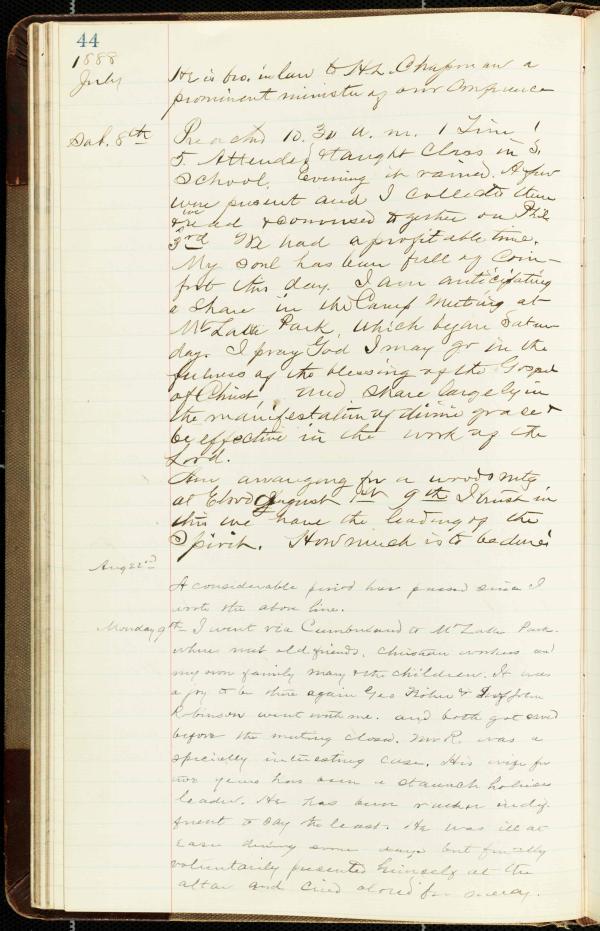 44
1888
July
He is bro. in law to H.L. Chapman a
prominent minister of our Conference
Sab. 8th Preached 10.30 a.m. 1 Tim 1
5. Attended & taught Class in S.
School. Evening it rained. A few
were present and I collected them
& we read & conversed together on Phil
3rd We had a profitable time.
My soul has been full of Com-
fort this day. I am anticipating
a share in the Camp Meeting at
Mt Lake Park, which began Satur-
day. I pray God I may go in the
fulness of the blessing of the Gospel
of Christ, and share largely in
the manifestation of divine grace &
be effective in the work of the
Lord.
Am arranging for a woods mtg
at August 1st 9th I trust in
this we have the leading of the
Spirit. How much is to be done!
Aug 22nd
A considerable period has passed since I
wrote the above line.
Monday 9th I went via Cumberland to Mt Lake Park.
where met old friends, Christian workers and
my own family Mary & the children. It was
a joy to be there again Geo & John
Robinson went with me. and both got saved
before the meeting closed. Mr R. was a
specially interesting case. His wife for
years has been a staunch holiness
leader. He has been rather indif-
ferent to say the least. He was ill at
ease during some days but finally
voluntarily presented himself at the
altar and cried aloud for mercy.